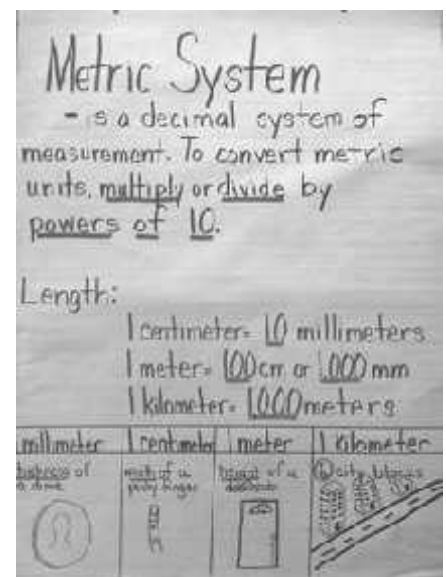 Metric System
- is a decimal system of
measurement. To convert metric
units, multiply or divide by
powers of 10.
Length:
1 centimeter= 10 millimeters
1 meter= 100 cm or 1,000 mm
1 kilometer= 1,000 meters
millimeter 1 centimeter 1 meter 1 kilometer
thickness of width of a height of a 6 city blocks
a dime pinky finger